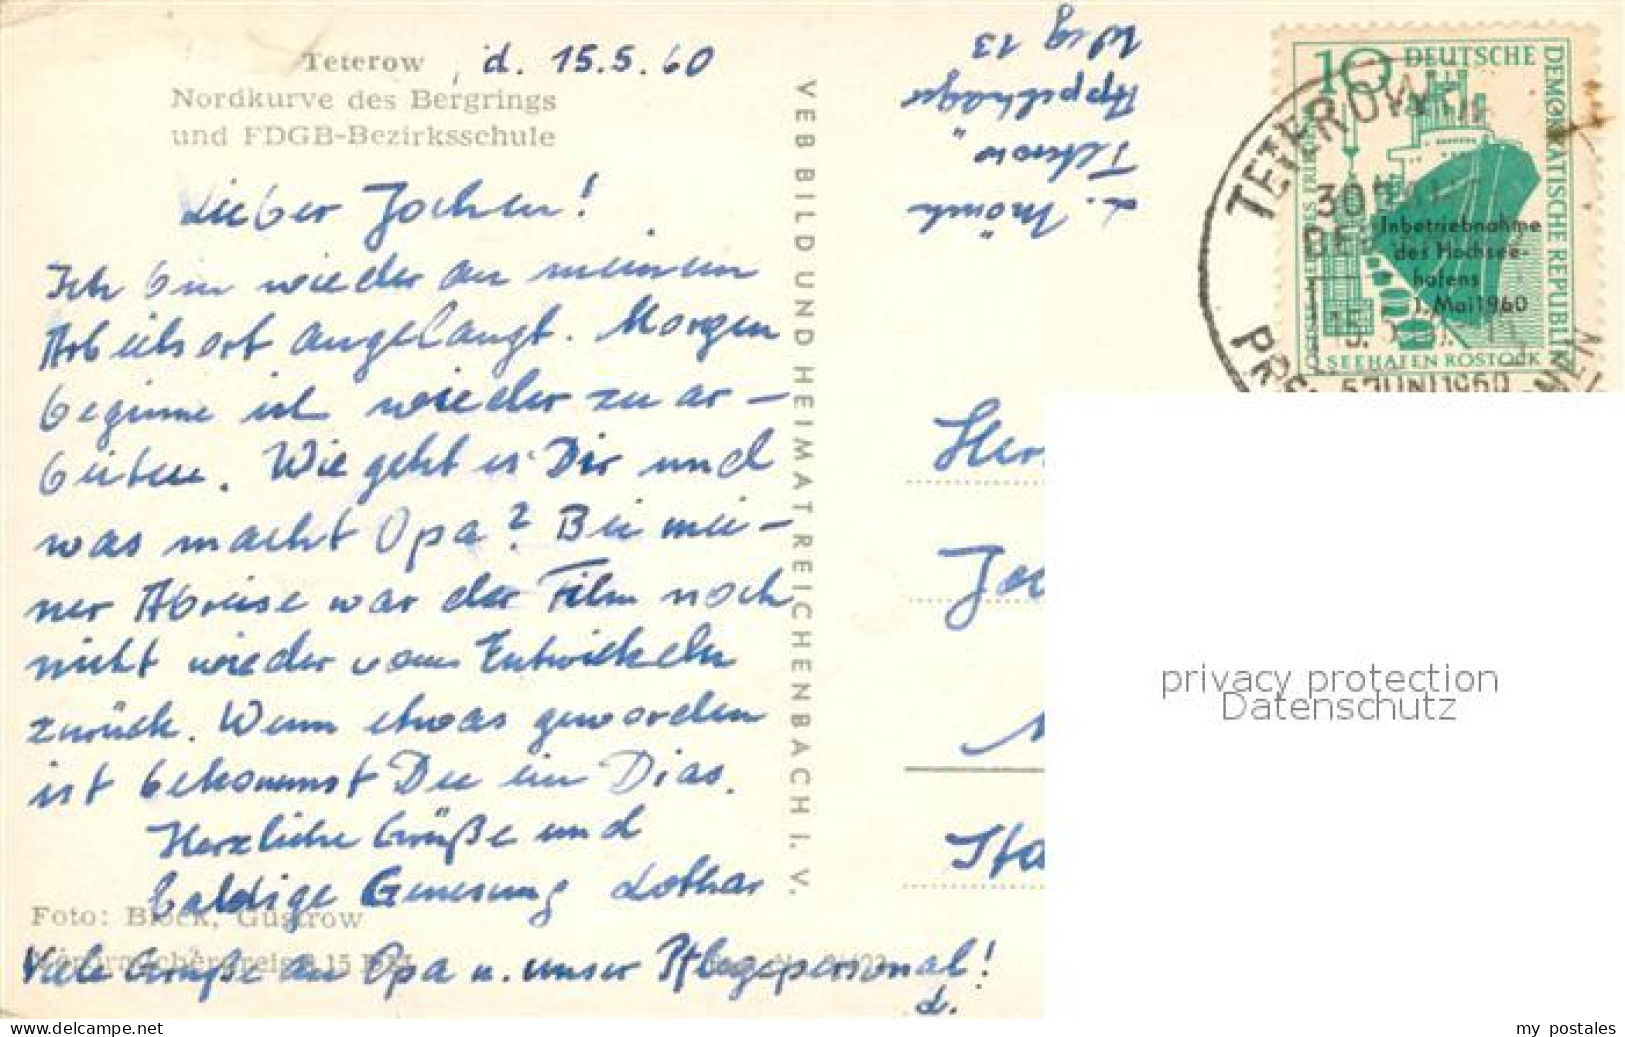 Teterow, d. 15.5.60
Nordkurve des Bergrings
und FDGB-Bezirksschule
Lieber Jochen!
Ich bin wieder an meinem
Arbeitsort angelangt. Morgen
beginne ich wieder zu ar-
beiten. Wie geht es Dir und
was macht Opa? Bei mei-
ner Abreise war der Film noch
nicht wieder vom Entwickeln
zurück. Wenn etwas geworden
ist bekommst Du ein Dias.
Herzliche Grüße und
baldige Genesung Lothar
Foto: Block, Güstrow
Viele Grüße an Opa u. unser Pflegepersonal!
L.
VEB BILD UND HEIMAT REICHENBACH I. V.
L. Mönch
Teterow
Appelhäger
Weg 13
10 DEUTSCHE DEMOKRATISCHE REPUBLIK
Inbetriebnahme
des Hochsee-
hafens
1. Mai 1960
SEEHAFEN ROSTOCK
TETEROW
5. JUNI 1960
Her
Joc
Sta
privacy protection
Datenschutz
www.delcampe.net
my_postales